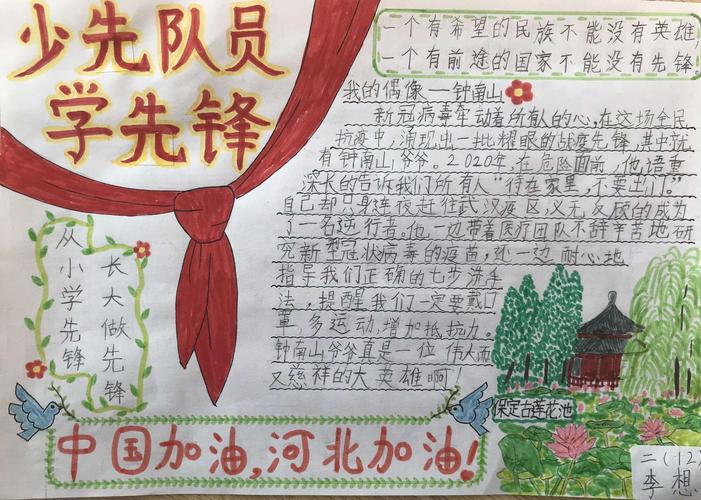 少先队员
学先锋
一个有希望的民族不能没有英雄,
一个有前途的国家不能没有先锋。
我的偶像——钟南山
新冠病毒牵动着所有人的心,在这场全民
抗疫中,涌现出一批耀眼的战疫先锋,其中就
有钟南山爷爷。2020年,在危险面前,他语重
深长的告诉我们所有人“待在家里,不要出门。”
自己却只身连夜赶往武汉疫区,义无反顾的成为
了一名逆行者。他一边带着医疗团队不辞辛苦地研
究新型冠状病毒的疫苗,还一边耐心地
指导我们正确的七步洗手
法,提醒我们一定要戴口
罩,多运动,增加抵抗力。
钟南山爷爷真是一位伟大而
又慈祥的大英雄啊!
从小学先锋
长大做先锋
保定古莲花池
中国加油,河北加油!
二(12)
李想